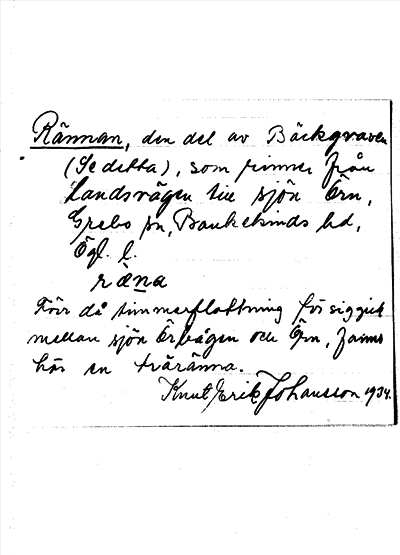 Rännan, den del av Bäckgraven
(Se detta), som rinner från
Landsvägen till sjön Örn,
Grebo sn, Bankekinds hd,
Ögl. l.
räna
Förr då timmerflottning försiggick
mellan sjön och Örn, fanns
här en träränna.
Knut Erik Johansson 1934.